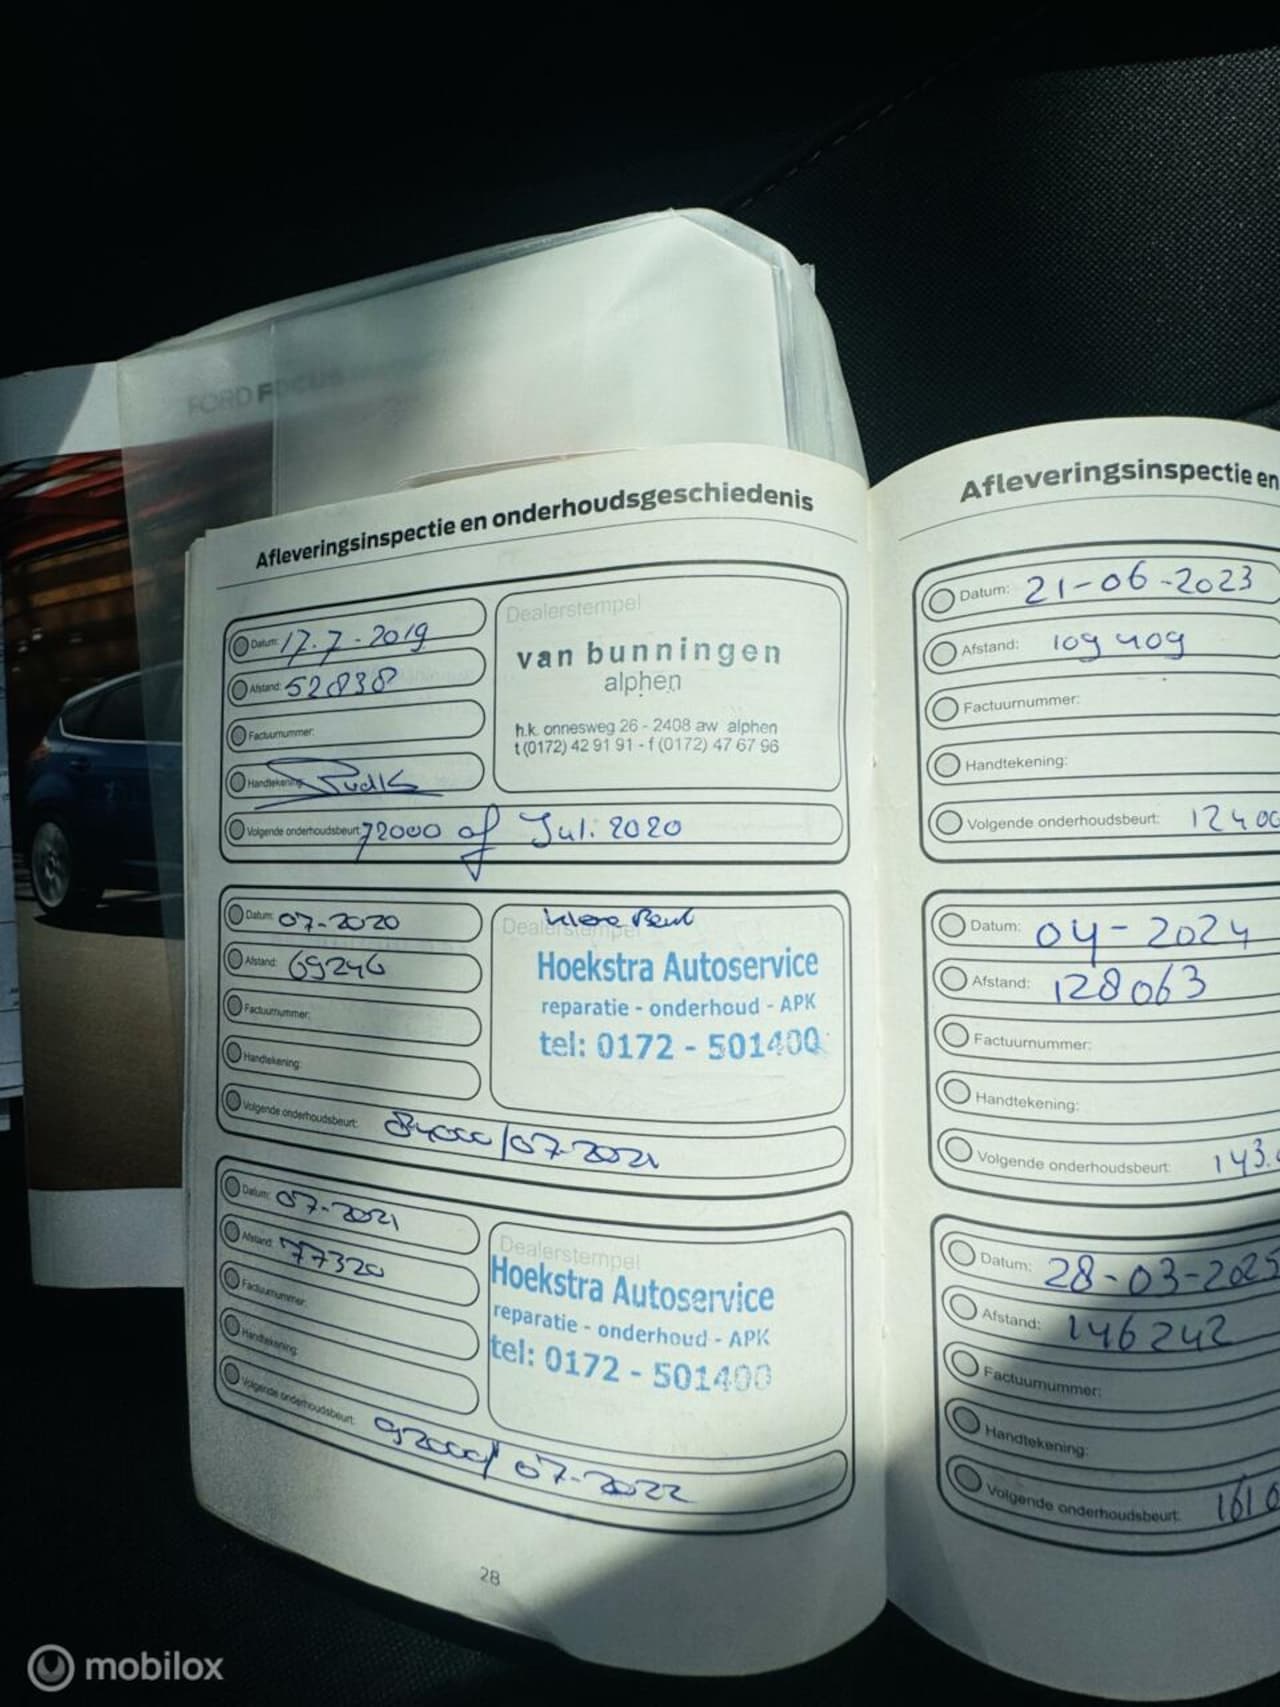 FORD FOCUS
Afleveringsinspectie en onderhoudsgeschiedenis
Datum: 17-7-2019
Afstand: 52838
Factuurnummer:
Handtekening:
Dealerstempel
van bunningen
alphen
h.k. onnesweg 26 - 2408 aw alphen
t (0172) 42 91 91 - f (0172) 47 67 96
Volgende onderhoudsbeurt: 72000 of Jul. 2020
Datum: 07-2020
Afstand: 69246
Factuurnummer:
Handtekening:
Dealerstempel
Hoekstra Autoservice
reparatie - onderhoud - APK
tel: 0172 - 501400
Volgende onderhoudsbeurt: 84000/07-2021
Datum: 07-2021
Afstand: 77320
Factuurnummer:
Handtekening:
Dealerstempel
Hoekstra Autoservice
reparatie - onderhoud - APK
tel: 0172 - 501400
Volgende onderhoudsbeurt: 92000/07-2022
28
Afleveringsinspectie en
Datum: 21-06-2023
Afstand: 109409
Factuurnummer:
Handtekening:
Volgende onderhoudsbeurt: 12400
Datum: 04-2024
Afstand: 128063
Factuurnummer:
Handtekening:
Volgende onderhoudsbeurt: 143.
Datum: 28-03-2025
Afstand: 146242
Factuurnummer:
Handtekening:
Volgende onderhoudsbeurt: 161
mobilox